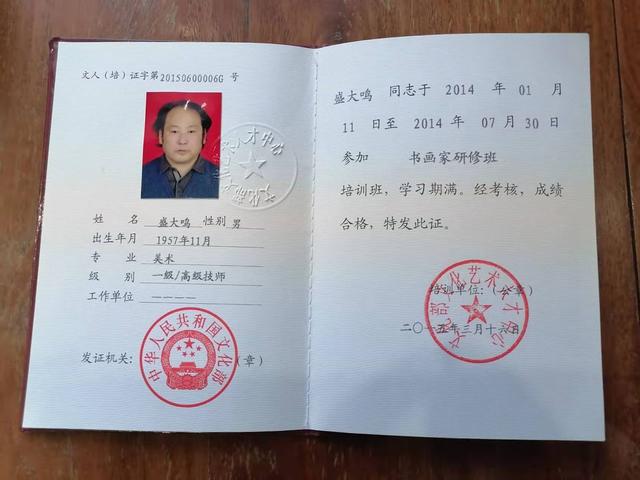 文人（培）证字第20150600006G 号
姓 名 盛大鸣 性别 男
出生年月 1957年11月
专 业 美术
级 别 一级/高级技师
工作单位 ————
发证机关： （章）
中华人民共和国文化部
盛大鸣 同志于 2014 年 01 月
11 日至 2014 年 07 月 30 日
参加 书画家研修班
培训班，学习期满。经考核，成绩
合格，特发此证。
培训单位：（公章）
文化部文化艺术人才中心
二〇一五年三月十六日